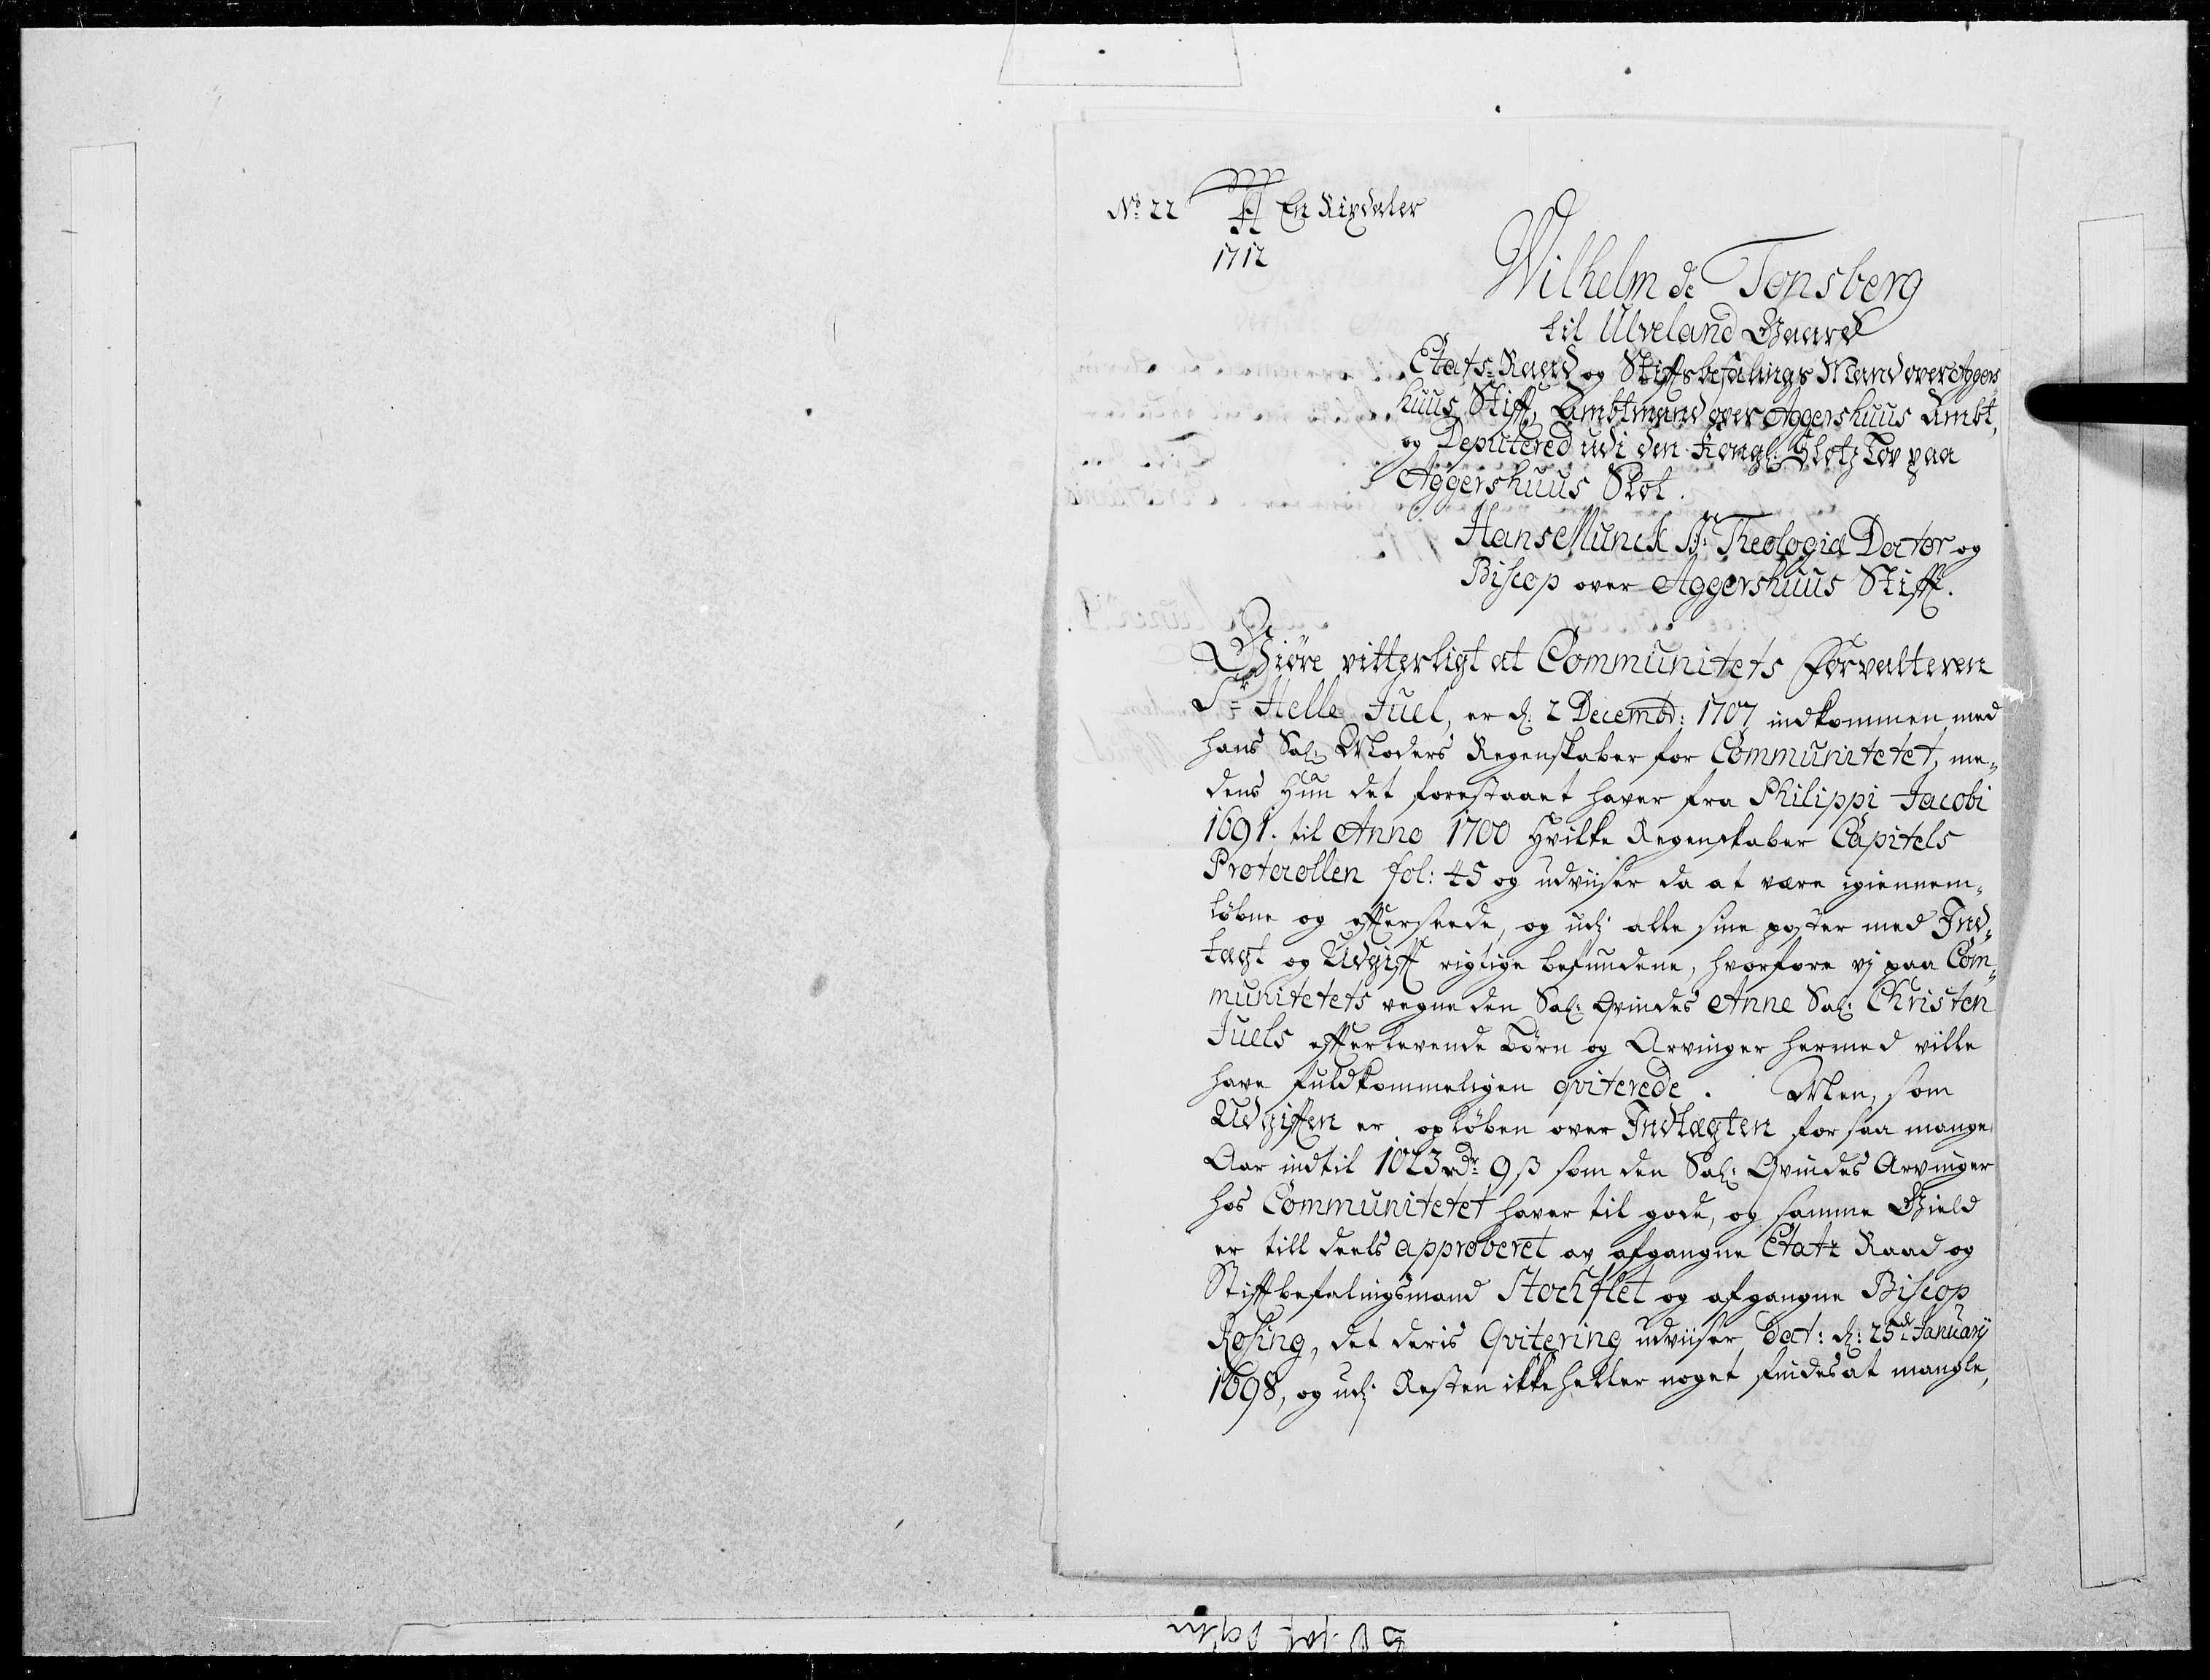 No. 22 En Rixdaler
1712
Wilhelm de Tonsberg
til Ulveland Gaard
Etats-Raad og Stiffsbefalings Mand over Aggers
huus Stift, Ambtmand over Aggershuus Ambt,
og Deputered udi den Kongl: Slotz Lov paa
Aggershuus Slot.
Hans Munck St: Theologiæ Doctor og
Biscop over Aggershuus Stifft.
Giöre vitterligt at Communitets Forvalteren
Sr Helle Juel, er d: 2 Decembr: 1707 indkommen med
hans Sal: Moders Regenskaber for Communitetet, me„
dens Hun det forestaaet haver fra Philippi Jacobi
1691. til Anno 1700 Hvilke Regenskaber Capitels
Protocollen fol: 45 og udviiser da at være igiennem„
løbne og effterseede, og udj alle sine poster med Ind„
tægt og Udgifft rigtige befundene, hvorfore vj paa Com„
munitetets vegne den Sal: Qvindes Anne Sal: Christen
Juels effterlevende Børn og Arvinger hermed ville
have fuldkommeligen qviterede. Men, som
Udgifften er opløben over Indtægten for saa mange
Aar indtil 1023 rdr 9 ß som den Sal: Qvindes Arvinger
hos Communitetet haver til gode, og samme Gield
er till deels approberet av afgangne Etatz Raad og
Stiftbefalingsmand Stochflet og afgangne Biscop
Rosing, det deris Qvitering udviiser, Dat: d: 25de Januarij
1698, og udj Resten ikke heller noget findes at mangle,